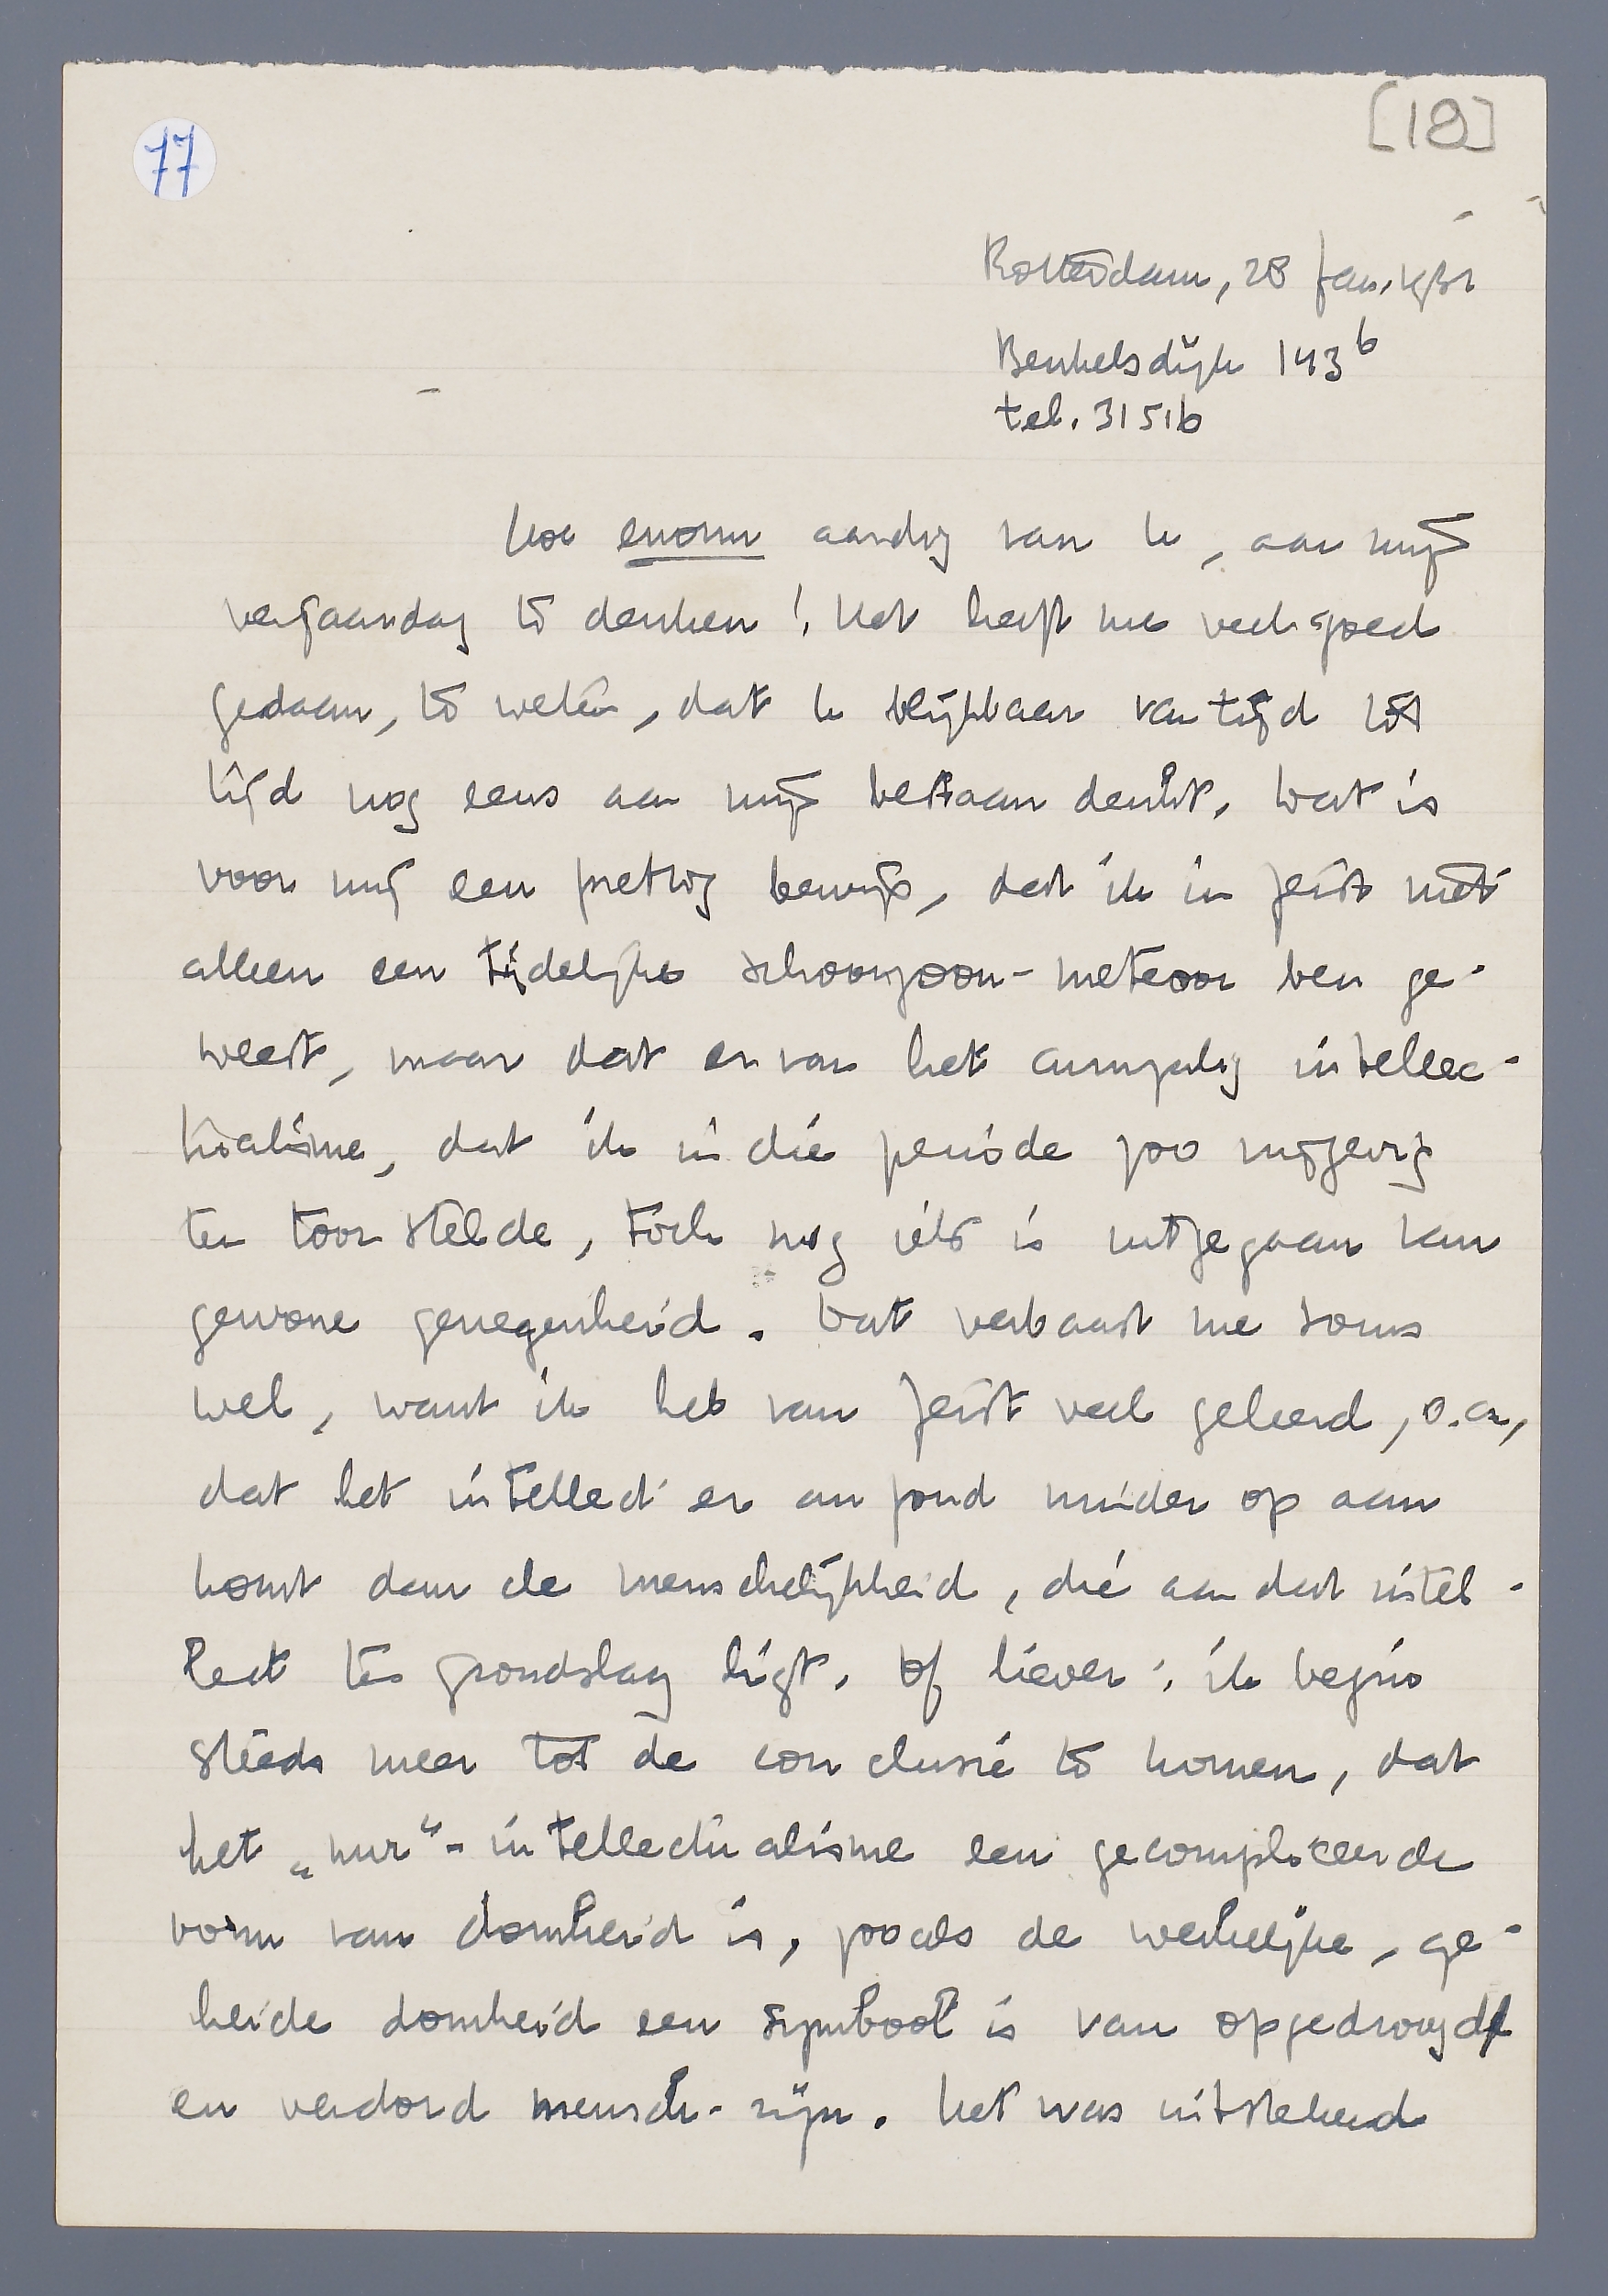 77
[19]
Rotterdam, 28 Jan. 1931
Beukelsdijk 143b
tel. 31516
Hoe enorm aardig van U, aan mijn
verjaardag te denken! Het heeft me veel goed
gedaan, te weten, dat U blijkbaar van tijd tot
tijd nog eens aan mijn bestaan denkt. Dat is
voor mij een prettig bewijs, dat ik in Zeist niet
alleen een tijdelijke schoonzoon-meteoor ben ge-
weest, maar dat er van het intellec-
tualisme, dat ik in die periode zoo
ten toon stelde, toch nog iets is uitgegaan van
gewone genegenheid. Dat verbaast me soms
wel, want ik heb van Zeist veel geleerd, o.a.,
dat het intellect er au fond minder op aan
komt dan de menschelijkheid, die aan dat intel-
lect ten grondslag ligt. Of liever: ik begin
steeds meer tot de conclusie te komen, dat
het „puur"-intellectualisme een gecompliceerde
vorm van domheid is, zooals de werkelijke, ge-
heide domheid een symbool is van opgedroogd
en verdord mensch-zijn. Het was uitstekend